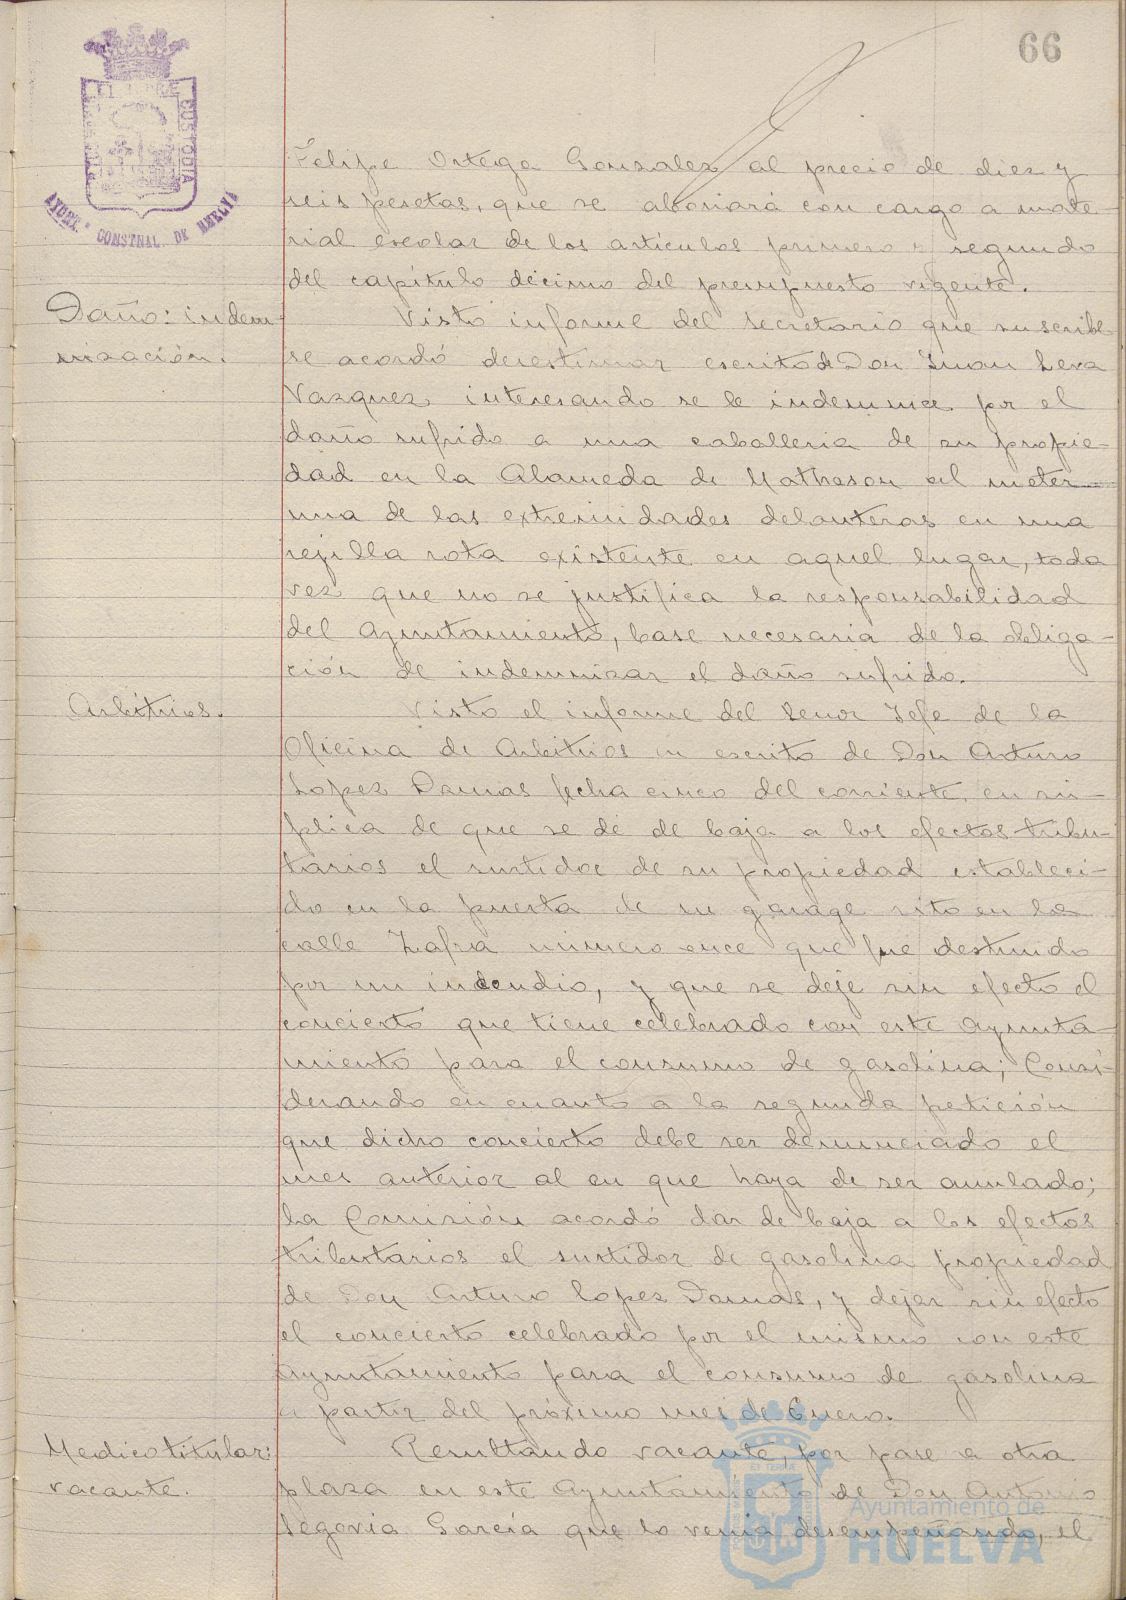 66
AYUNT.º CONSTNAL. DE HUELVA
Felipe Ortega Gonzalez al precio de diez y
seis pesetas, que se abonará con cargo a mate-
rial escolar de los artículos primero y segundo
del capítulo décimo del presupuesto vigente.
Daño: indem-
nización.
Visto informe del Secretario que suscribe
se acordó desestimar escrito de Don Juan Lera
Vazquez interesando se le indemnice por el
daño sufrido a una caballeria de su propie-
dad en la Alameda de Matheson al meter
una de las extremidades delanteras en una
rejilla rota existente en aquel lugar, toda
vez que no se justifica la responsabilidad
del Ayuntamiento, base necesaria de la obliga-
ción de indemnizar el daño sufrido.
Arbitrios.
Visto el informe del Senor Jefe de la
Oficina de Arbitrios en escrito de Don Arturo
Lopez Damas fecha cinco del corriente, en sú-
plica de que se dé de baja a los efectos tribu-
tarios el surtidor de su propiedad estableci-
do en la puerta de su garage sito en la
calle Zafra número once que fué destruido
por un incendio, y que se deje sin efecto el
concierto que tiene celebrado con este Ayunta-
miento para el consumo de gasolina; Consi-
derando en cuanto a la segunda petición
que dicho concierto debe ser denunciado el
mes anterior al en que haya de ser anulado;
La Comisión acordó dar de baja a los efectos
tributarios el surtidor de gasolina propiedad
de Don Arturo Lopez Damas, y dejar sin efecto
el concierto celebrado por el mismo con este
Ayuntamiento para el consumo de gasolina
a partir del próximo mes de Enero.
Medico titular:
vacante.
Resultando vacante, por pase a otra
plaza en este Ayuntamiento de Don Antonio
Segovia García que la venia desempeñando, el
Ayuntamiento de
HUELVA